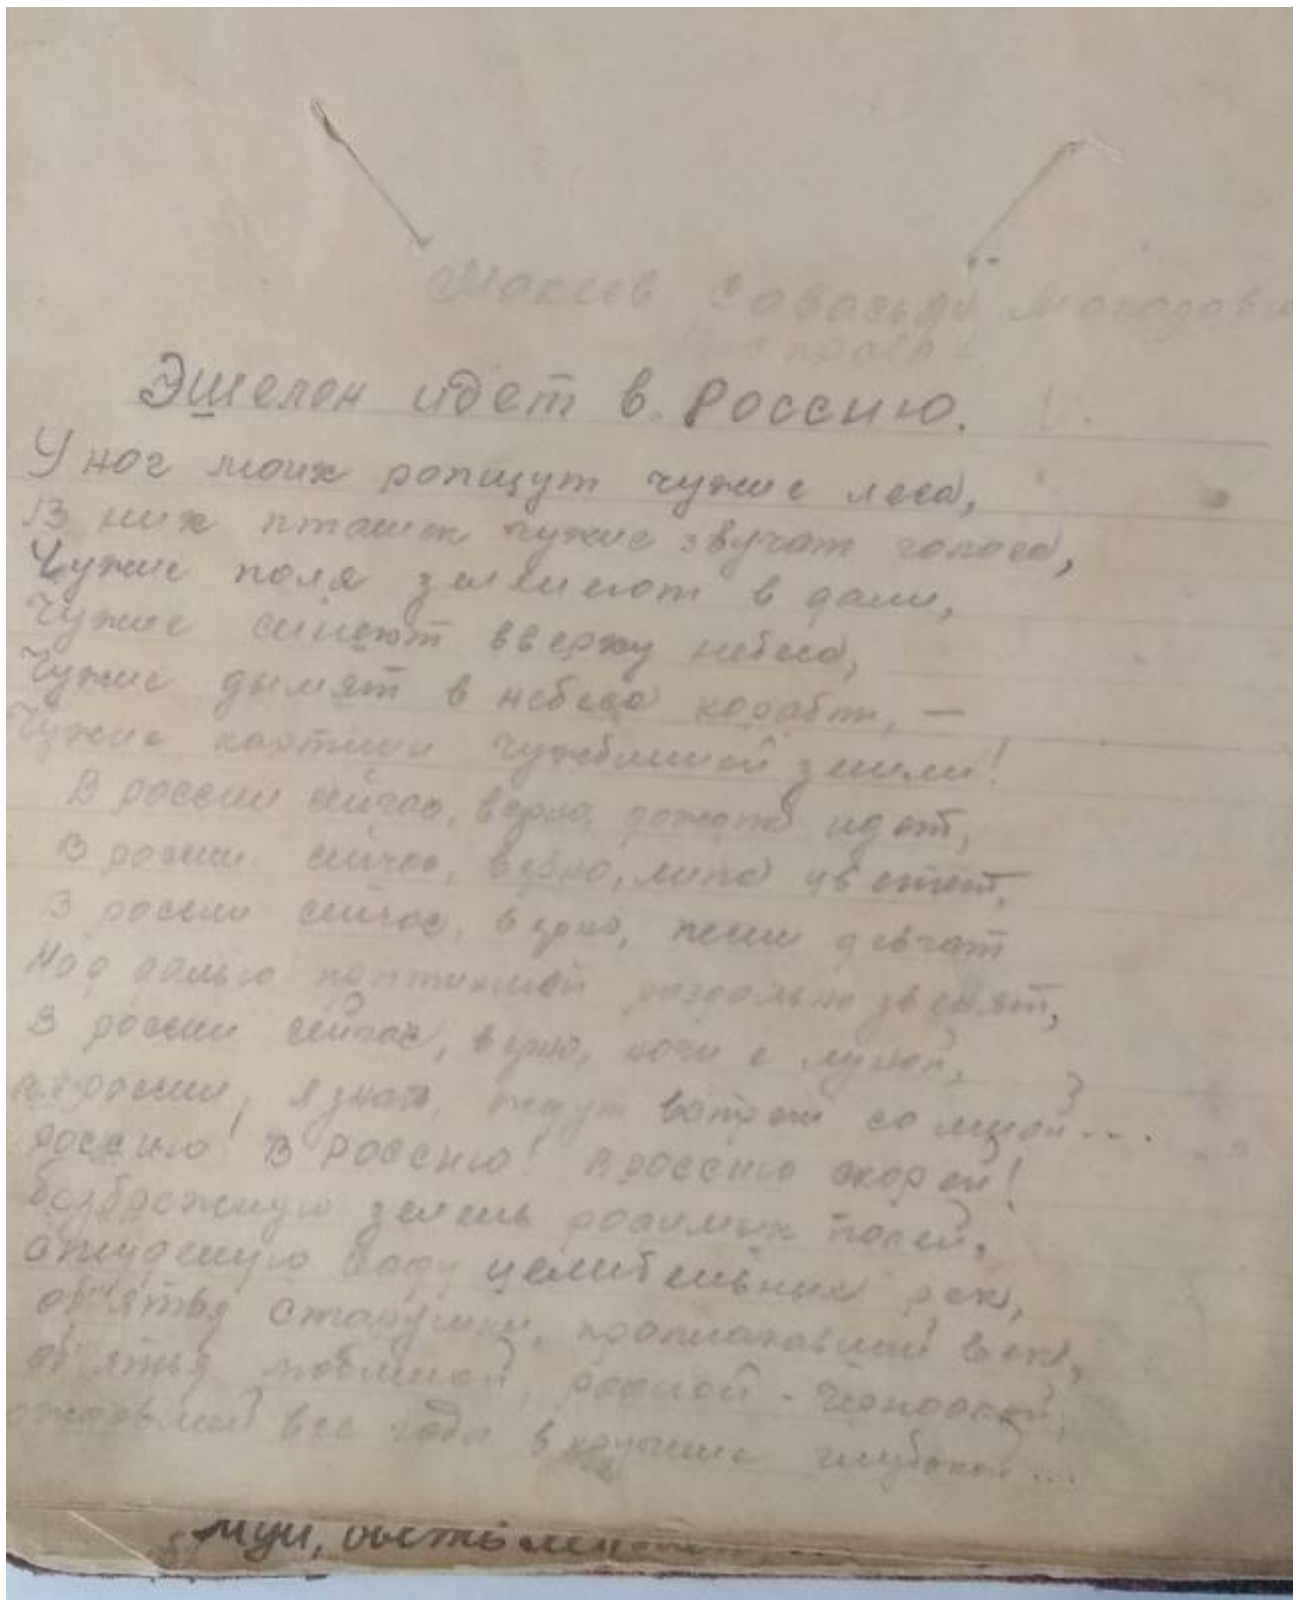 Макеев
Эшелон идет в Россию.
У ног моих ропщут чужие леса,
В них пташек чужие звучат голоса,
Чужие поля зеленеют в дали,
Чужие синеют вверху небеса,
Чужие дымят в небеса корабли, —
Чужие картины чужбинной земли!
В россии сейчас, верно, дождь идет,
В россии сейчас, верно, липа цветет,
В россии сейчас, верно, песни девчат
Над далью раздольно звенят,
В россии сейчас, верно, ночи с луной,
россии, я знаю, ждут встречи со мной...
россию! В Россию! В россию скорей!
безбрежную зелень родимых полей,
студеную воду целительных рек,
об'ятья старушки, проплакавшей век,
об'ятья любимой, родной -
все года в кручине глубокой...